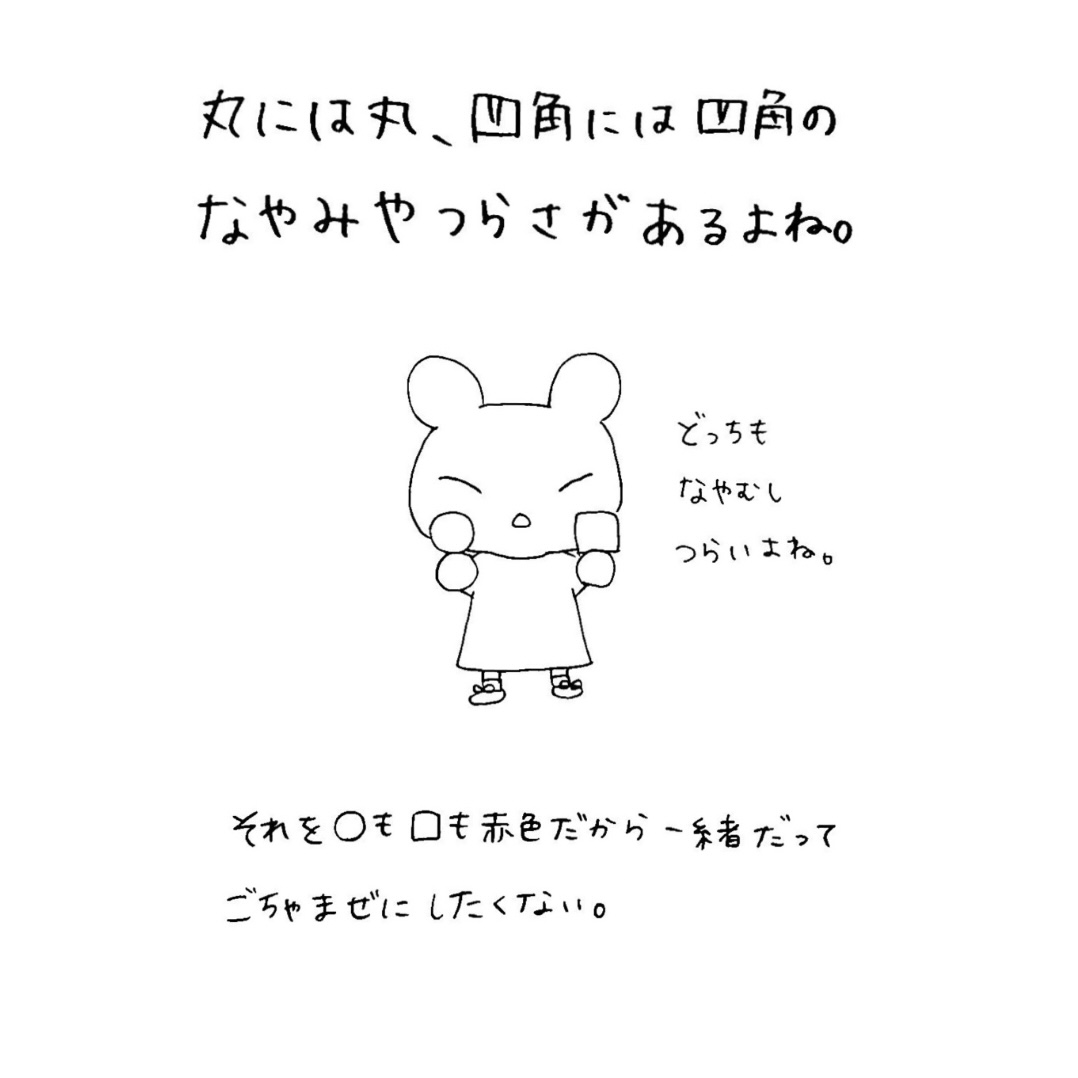 丸には丸、四角には四角の
なやみやつらさがあるよね。
どっちも
なやむし
つらいよね。
それを○も□も赤色だから一緒だって
ごちゃまぜにしたくない。